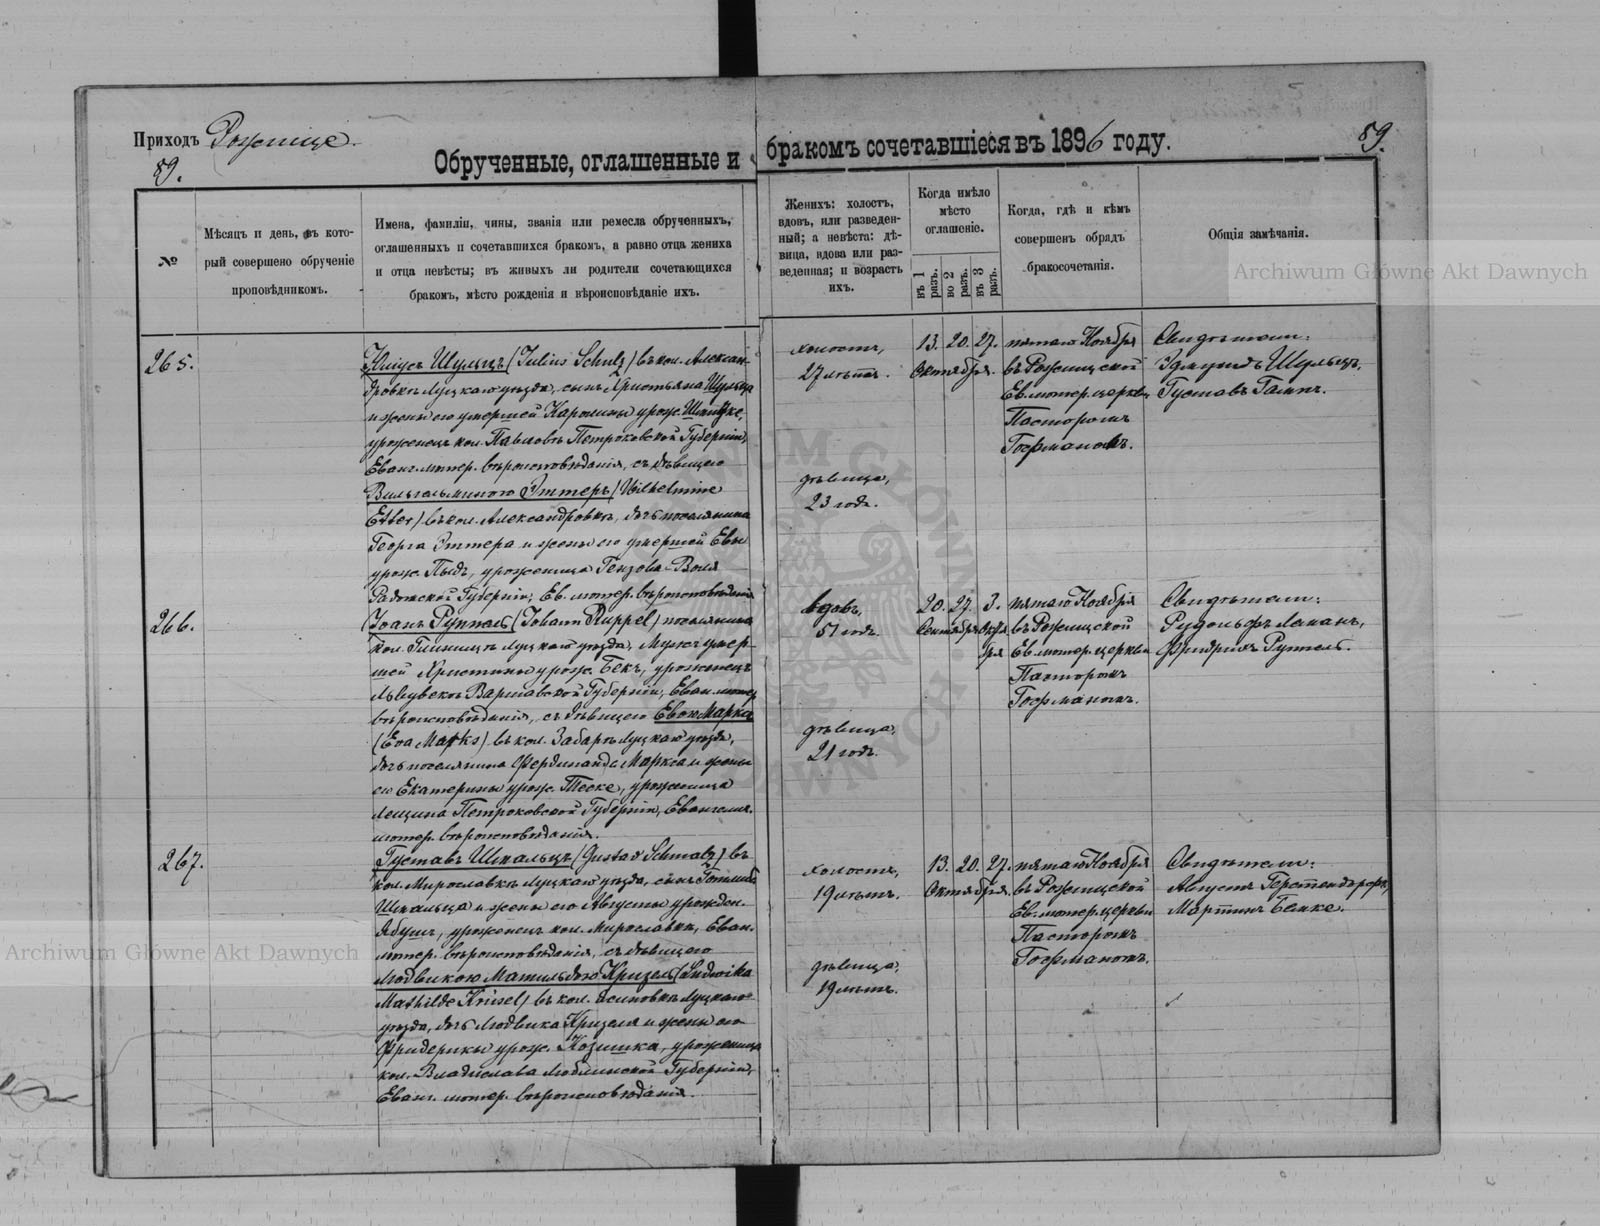 Приходъ Рожище.
89.
89.
Обрученные, оглашенные и бракомъ сочетавшіеся въ 1896 году.
№
Мѣсяцъ и день, въ кото-
рый совершено обрученіе
проповѣдникомъ.
Имена, фамиліи, чины, званія или ремесла обрученныхъ,
оглашенныхъ и сочетавшихся бракомъ, а равно отца жениха
и отца невѣсты; въ живыхъ ли родители сочетающихся
бракомъ, мѣсто рожденія и вѣроисповѣданіе ихъ.
Женихъ: холостъ,
вдовъ, или разведен-
ный; а невѣста: дѣ-
вица, вдова или раз-
веденная; и возрастъ
ихъ.
Когда имѣло
мѣсто
оглашеніе.
въ 1 разъ.
во 2 разъ.
въ 3 разъ.
Когда, гдѣ и кѣмъ
совершенъ обрядъ
бракосочетанія.
Общія замѣчанія.
Archiwum Główne Akt Dawnych
265.
Юліусъ Шульцъ (Julius Schulz) въ кол. Алексан-
дровкѣ Луцкаго уѣзда, сынъ Христьяна Шульца
и жены его умершей Каролины урож.
уроженецъ кол. Павловъ Петроковской Губерніи,
Еванг. лютер. вѣроисповѣданія, съ дѣвицею
Вильгельминою Эттеръ (Wilhelmine
Etter) въ кол. Александровкѣ, дочь поселянина
Георга Эттера и жены его умершей Евы
урож. Пыдъ, уроженица Гензова Воля
Радомской Губерніи, Ев. лютер. вѣроисповѣданія
холостъ,
27 лѣтъ.
дѣвица,
23 годъ.
13. 20. 27.
Октября.
пятаго Ноября
въ Рожищской
Ев. лютер. церкви
Пасторомъ
Гофманомъ.
Свидѣтели:
Эдмундъ Шульцъ,
Густавъ Гампъ.
266.
Іоанъ Руппель (Johann Ruppel) поселянинъ
кол. Глинищъ Луцкаго уѣзда, мужъ умер-
шей Христины урож. Бекъ, уроженецъ
Варшавской Губерніи, Еван. лютер.
вѣроисповѣданія, съ дѣвицею Евою Марксъ
(Eva Marks) въ кол. Забара Луцкаго уѣзда,
дочь поселянина Фердинанда Маркса и жены
его Екатерины урож. Теске, уроженица
Лещина Петроковской Губерніи, Евангелич.
лютер. вѣроисповѣданія.
вдовъ,
51 годъ.
дѣвица,
21 годъ.
20. 27. 3.
Сентября Октя-
бря
пятаго Ноября
въ Рожищской
Ев. лютер. церкви
Пасторомъ
Гофманомъ.
Свидѣтели:
Рудольфъ Леманъ,
Фридрихъ Руппель.
267.
Густавъ Шмальцъ (Gustav Schmalz) въ
кол. Мирославкѣ Луцкаго уѣзда, сынъ Готлиба
Шмальца и жены его Августы урожден.
Ябушъ, уроженецъ кол. Мирославки, Еван.
лютер. вѣроисповѣданія, съ дѣвицею
Людвикою Матильдою Кризель (Ludwika
Mathilde Krüsel) въ кол. Осиновкѣ Луцкаго
уѣзда, дочь Людвика Кризеля и жены его
Фридерики урож. Козишка, уроженица
кол. Владислава Люблинской Губерніи,
Еванг. лютер. вѣроисповѣданія.
холостъ,
19 лѣтъ.
дѣвица,
19 лѣтъ.
13. 20. 27.
Октября.
пятаго Ноября
въ Рожищской
Ев. лютер. церкви
Пасторомъ
Гофманомъ.
Свидѣтели:
Августъ Герстендорфъ,
Мартинъ Бемке.
Archiwum Główne Akt Dawnych